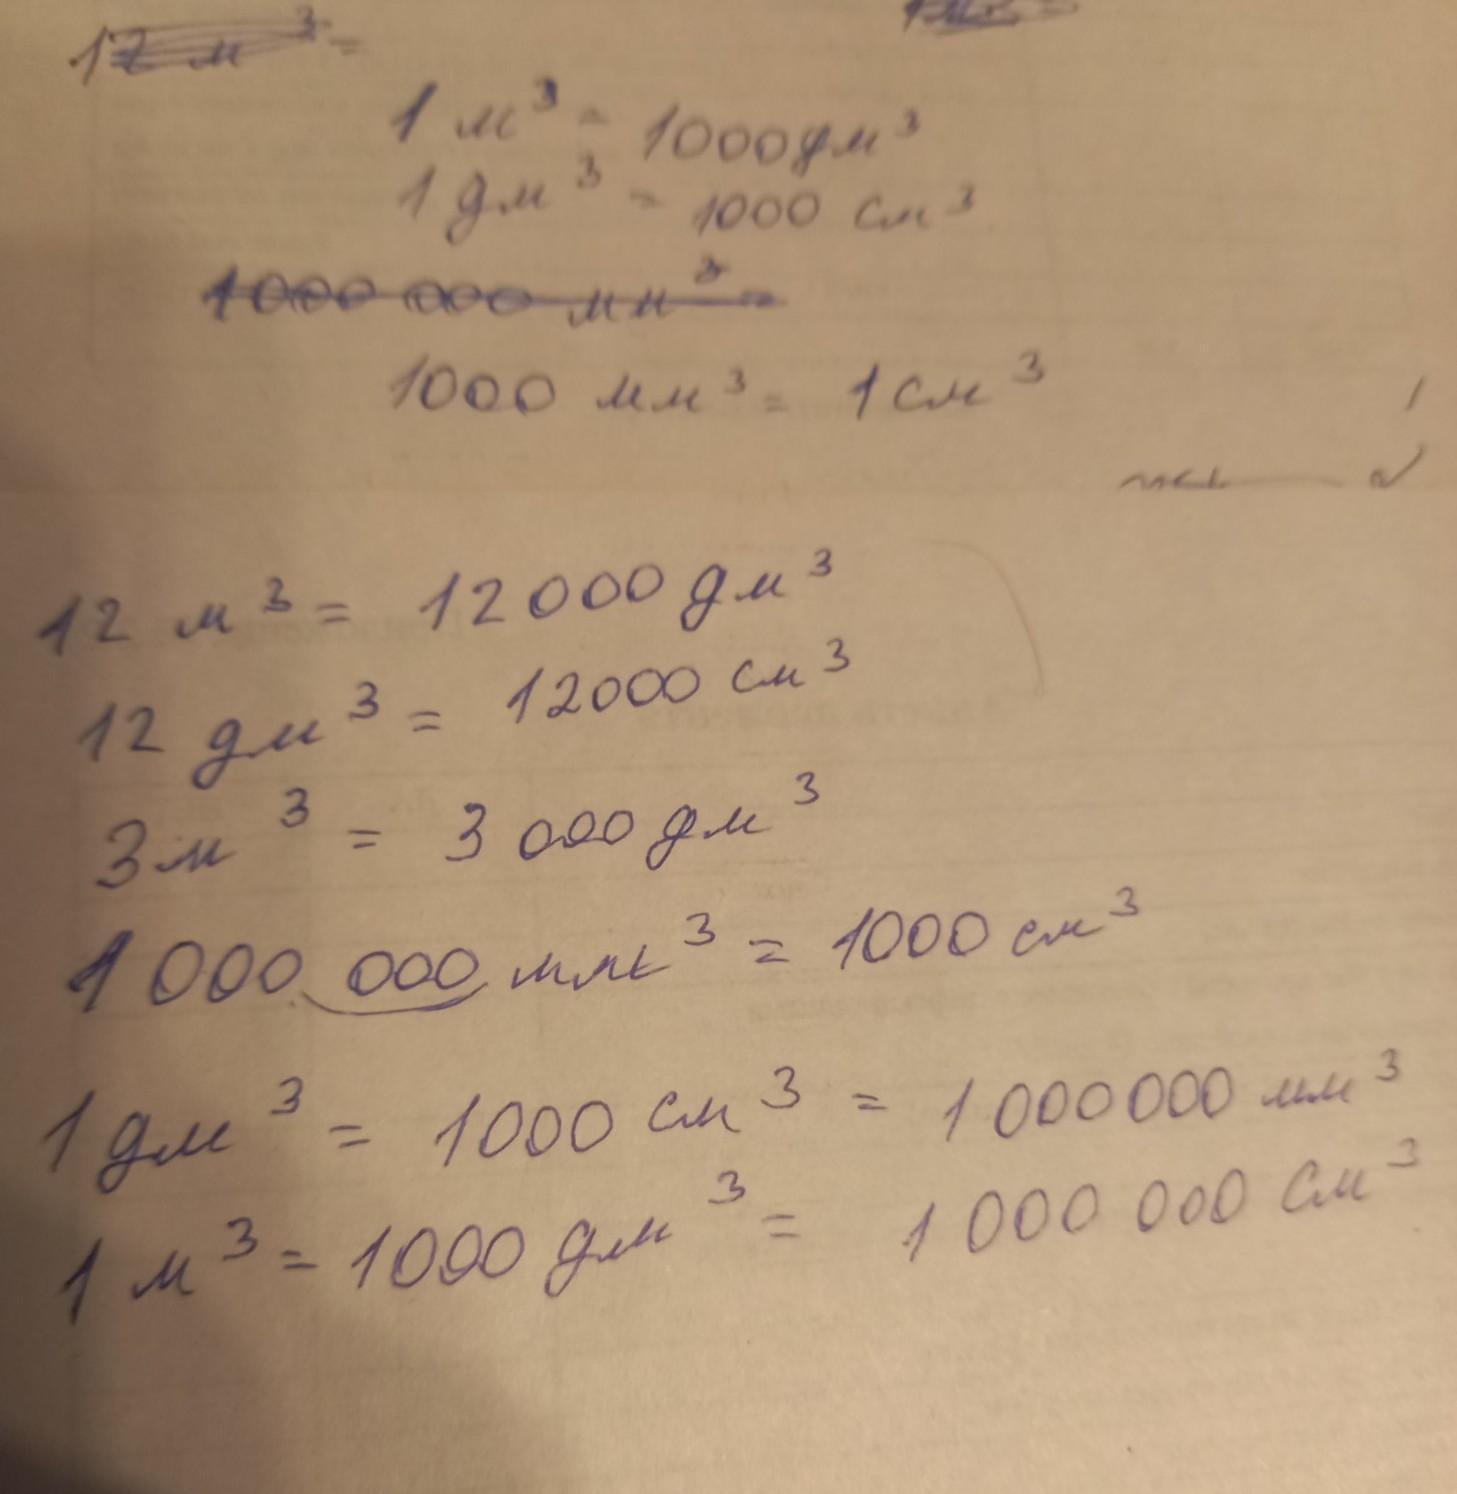 12 м³ =
1 м³ = 1000 дм³
1 дм³ = 1000 см³
1000 000 мм³ =
1000 мм³ = 1 см³
12 м³ = 12 000 дм³
12 дм³ = 12000 см³
3 м³ = 3 000 дм³
1 000 000 мм³ = 1000 см³
1 дм³ = 1000 см³ = 1 000 000 мм³
1 м³ = 1000 дм³ = 1 000 000 см³